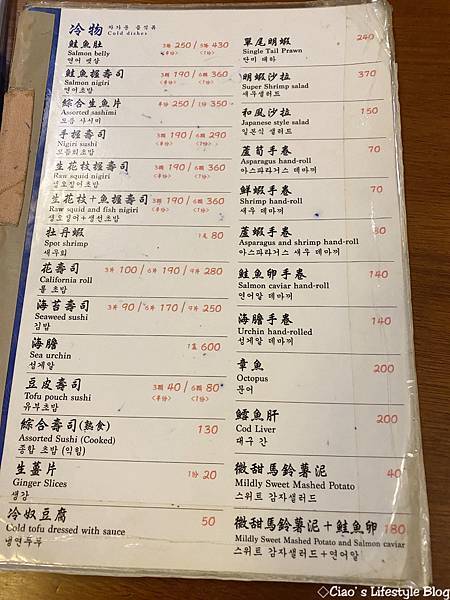 冷物 차가운 음식류
Cold dishes
鮭魚肚 3片 250 / 5片 430
Salmon belly <半份> <1份>
연어 뱃살
鮭魚握壽司 3顆 190 / 6顆 360
Salmon nigiri <半份> <1份>
연어초밥
綜合生魚片 6片 250 / 9片 350
Assorted sashimi <半份> <1份>
모듬 사시미
手握壽司 3顆 190 / 6顆 290
Nigiri sushi <半份> <1份>
모듬회초밥
生花枝握壽司 3顆 190 / 6顆 360
Raw squid nigiri <半份> <1份>
생오징어초밥
生花枝+魚握壽司 3顆 190 / 6顆 360
Raw squid and fish nigiri <半份> <1份>
생오징어+생선초밥
牡丹蝦 1隻 80
Spot shrimp
새우회
花壽司 3片 100 / 6片 190 / 9片 280
California roll
롤 초밥
海苔壽司 3片 90 / 6片 170 / 9片 250
Seaweed sushi
김밥
海膽 600
Sea urchin
성게알
豆皮壽司 3顆 40 / 6顆 80
Tofu pouch sushi <半份> <1份>
유부초밥
綜合壽司(熟食) 130
Assorted Sushi (Cooked)
종합 초밥 (익힘)
生薑片 1份 20
Ginger Slices
생강
冷奴豆腐 50
Cold tofu dressed with sauce
냉연두부
單尾明蝦 240
Single Tail Prawn
단미 대하
明蝦沙拉 370
Super Shrimp salad
새우샐러드
和風沙拉 150
Japanese style salad
일본식 샐러드
蘆筍手卷 70
Asparagus hand-roll
아스파라거스 데마끼
鮮蝦手卷 70
Shrimp hand-roll
새우 데마끼
蘆蝦手卷 80
Asparagus and shrimp hand-roll
아스파라거스 새우 데마끼
鮭魚卵手卷 140
Salmon caviar hand-roll
연어알 데마끼
海膽手卷 140
Urchin hand-rolled
성게알 데마끼
章魚 200
Octopus
문어
鱈魚肝 200
Cod Liver
대구 간
微甜馬鈴薯泥 40
Mildly Sweet Mashed Potato
스위트 감자샐러드
微甜馬鈴薯泥+鮭魚卵 180
Mildly Sweet Mashed Potato and Salmon caviar
스위트 감자샐러드+연어알
◇Ciao's Lifestyle Blog